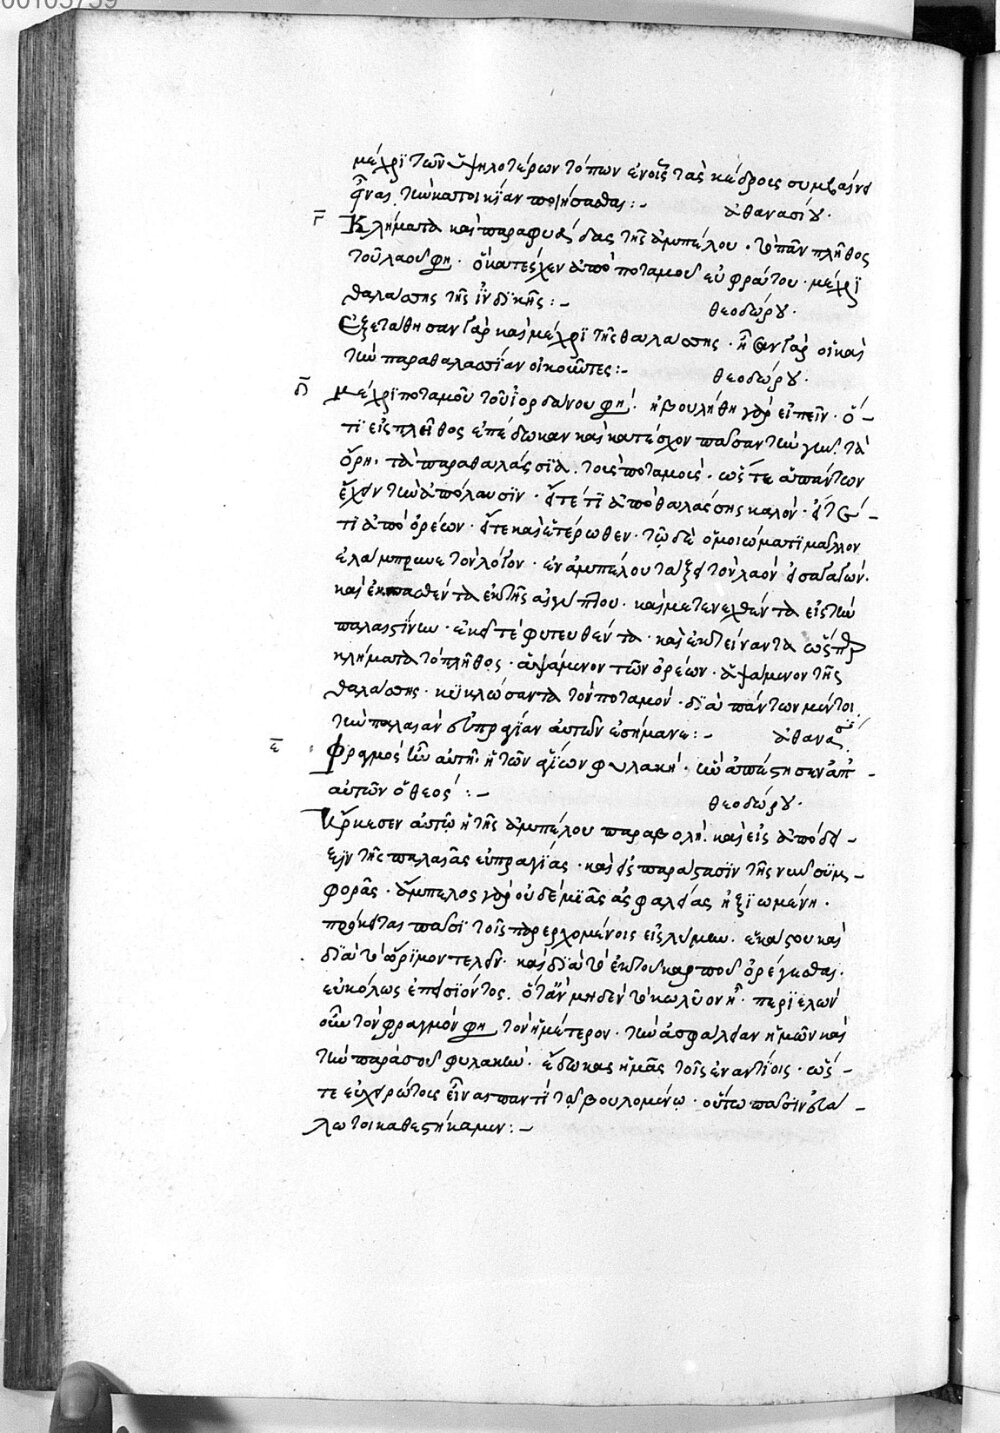 00103759
μέχρϊ τῶν ὑψηλοτέρων τόπων ἐν οἷς τὰς κέδρους συμβαίνει
εἶναι, τὴν κατοικΐαν ποιήσασθαι:– ἀθανασίου·
γ̄ Κλήματα καὶ παραφυάδας τῆς ἀμπέλου· τὸ πᾶν πλῆθος
τοῦ λαοῦ φη· ὃ κατέσχεν ἀπὸ ποταμοῦ εὐφράτου· μέχρϊ
θαλάσσης τῆς ἰνδϊκῆς:– θεοδώρου·
Ἐξετάθησαν γὰρ καὶ μέχρϊ τῆς θαλάσσης· ἦσαν γὰρ οἱ καὶ
τὴν παραθαλασσΐαν οἰκοῦντες:– θεοδώρου·
δ̄ μέχρϊ ποταμοῦ τοῦ ἰορδάνου φη· ἠβουλήθη γὰρ εἰπεῖν· ὅ–
τι εἰς πλεῖθος ἐπέδωκαν καὶ κατέσχον πᾶσαν τὴν γῆν· τὰ
ὄρη· τὰ παραθαλάσσϊα· τοῖς ποταμοῖς· ὥστε ἁπάντων
ἔχειν τὴν ἀπόλαυσϊν· εἴτέ τϊ ἀπὸ θαλάσσης καλόν· εἴτε
τϊ ἀπὸ ὀρέων· εἴτε καὶ ἑτέρωθεν· τῷ δὲ ὁμοιώματϊ μᾶλλον
ἐλάμπρυνε τὸν λόγον· ἐν ἀμπέλου τάξει τὸν λαὸν εἰσαγαγών·
καὶ ἐκσπασθέντα ἐκ τῆς αἰγύπτου· καὶ μετενεχθέντα εἰς τὴν
παλαιστίνην· ἐκεῖ τε φυτευθέντα· καὶ ἐκτείναντα ὥσπερ
κλήματα τὸ πλῆθος· ἁψάμενον τῶν ὀρέων· ἁψάμενον τῆς
θαλάσσης· κϋκλώσαντα τὸν ποταμόν· δϊὰ πάντων μέντοι
τὴν παλαιὰν εὐπραγΐαν αὐτῶν ἐσήμανε:– ἀθανασ
ε̄ Φραγμὸς ἦν αὐτῆ· ἡ τῶν ἁγΐων φυλακή· ἣν ἀπέστησεν ἀπ–
αὐτῶν ὁ θεός:– θεοδώρου·
Ἤρκεσεν αὐτῷ ἡ τῆς ἀμπέλου παραβολὴ· καὶ εἰς ἀπόδει–
ξϊν τῆς παλαιᾶς εὐπραγίας· καὶ εἰς παράστασϊν τῆς νῦν σϋμ–
φορᾶς· ἄμπελος γὰρ οὐδεμϊᾶς ἀσφαλείας ἠξϊωμένη·
πρόκειται πᾶσϊ τοῖς παρερχομένοις εἰς λύμην· ἑκάστου καὶ
δϊὰ τὸ ὥρϊμον τελεῖν· καὶ δϊὰ τὸ ἐκ τοῦ καρποῦ ὀρέγεσθαι·
εὐκόλως ἐπεισϊόντος· ὅτὰν μηδὲν τὸ κωλῦον ἦ· περϊελὼν
οὖν τὸν φραγμόν φη τὸν ἡμέτερον· τὴν ἀσφάλειαν ἡμῶν καὶ
τὴν παρὰ σοῦ φυλακήν· ἔδωκας ἡμᾶς τοῖς ἐναντΐοις· ὥσ–
τε εὐχειρώτοις εἶναι παντὶ τῷ βουλομένῳ· οὕτω πᾶσϊν εὐά–
λωτοι καθεστήκαμεν:–